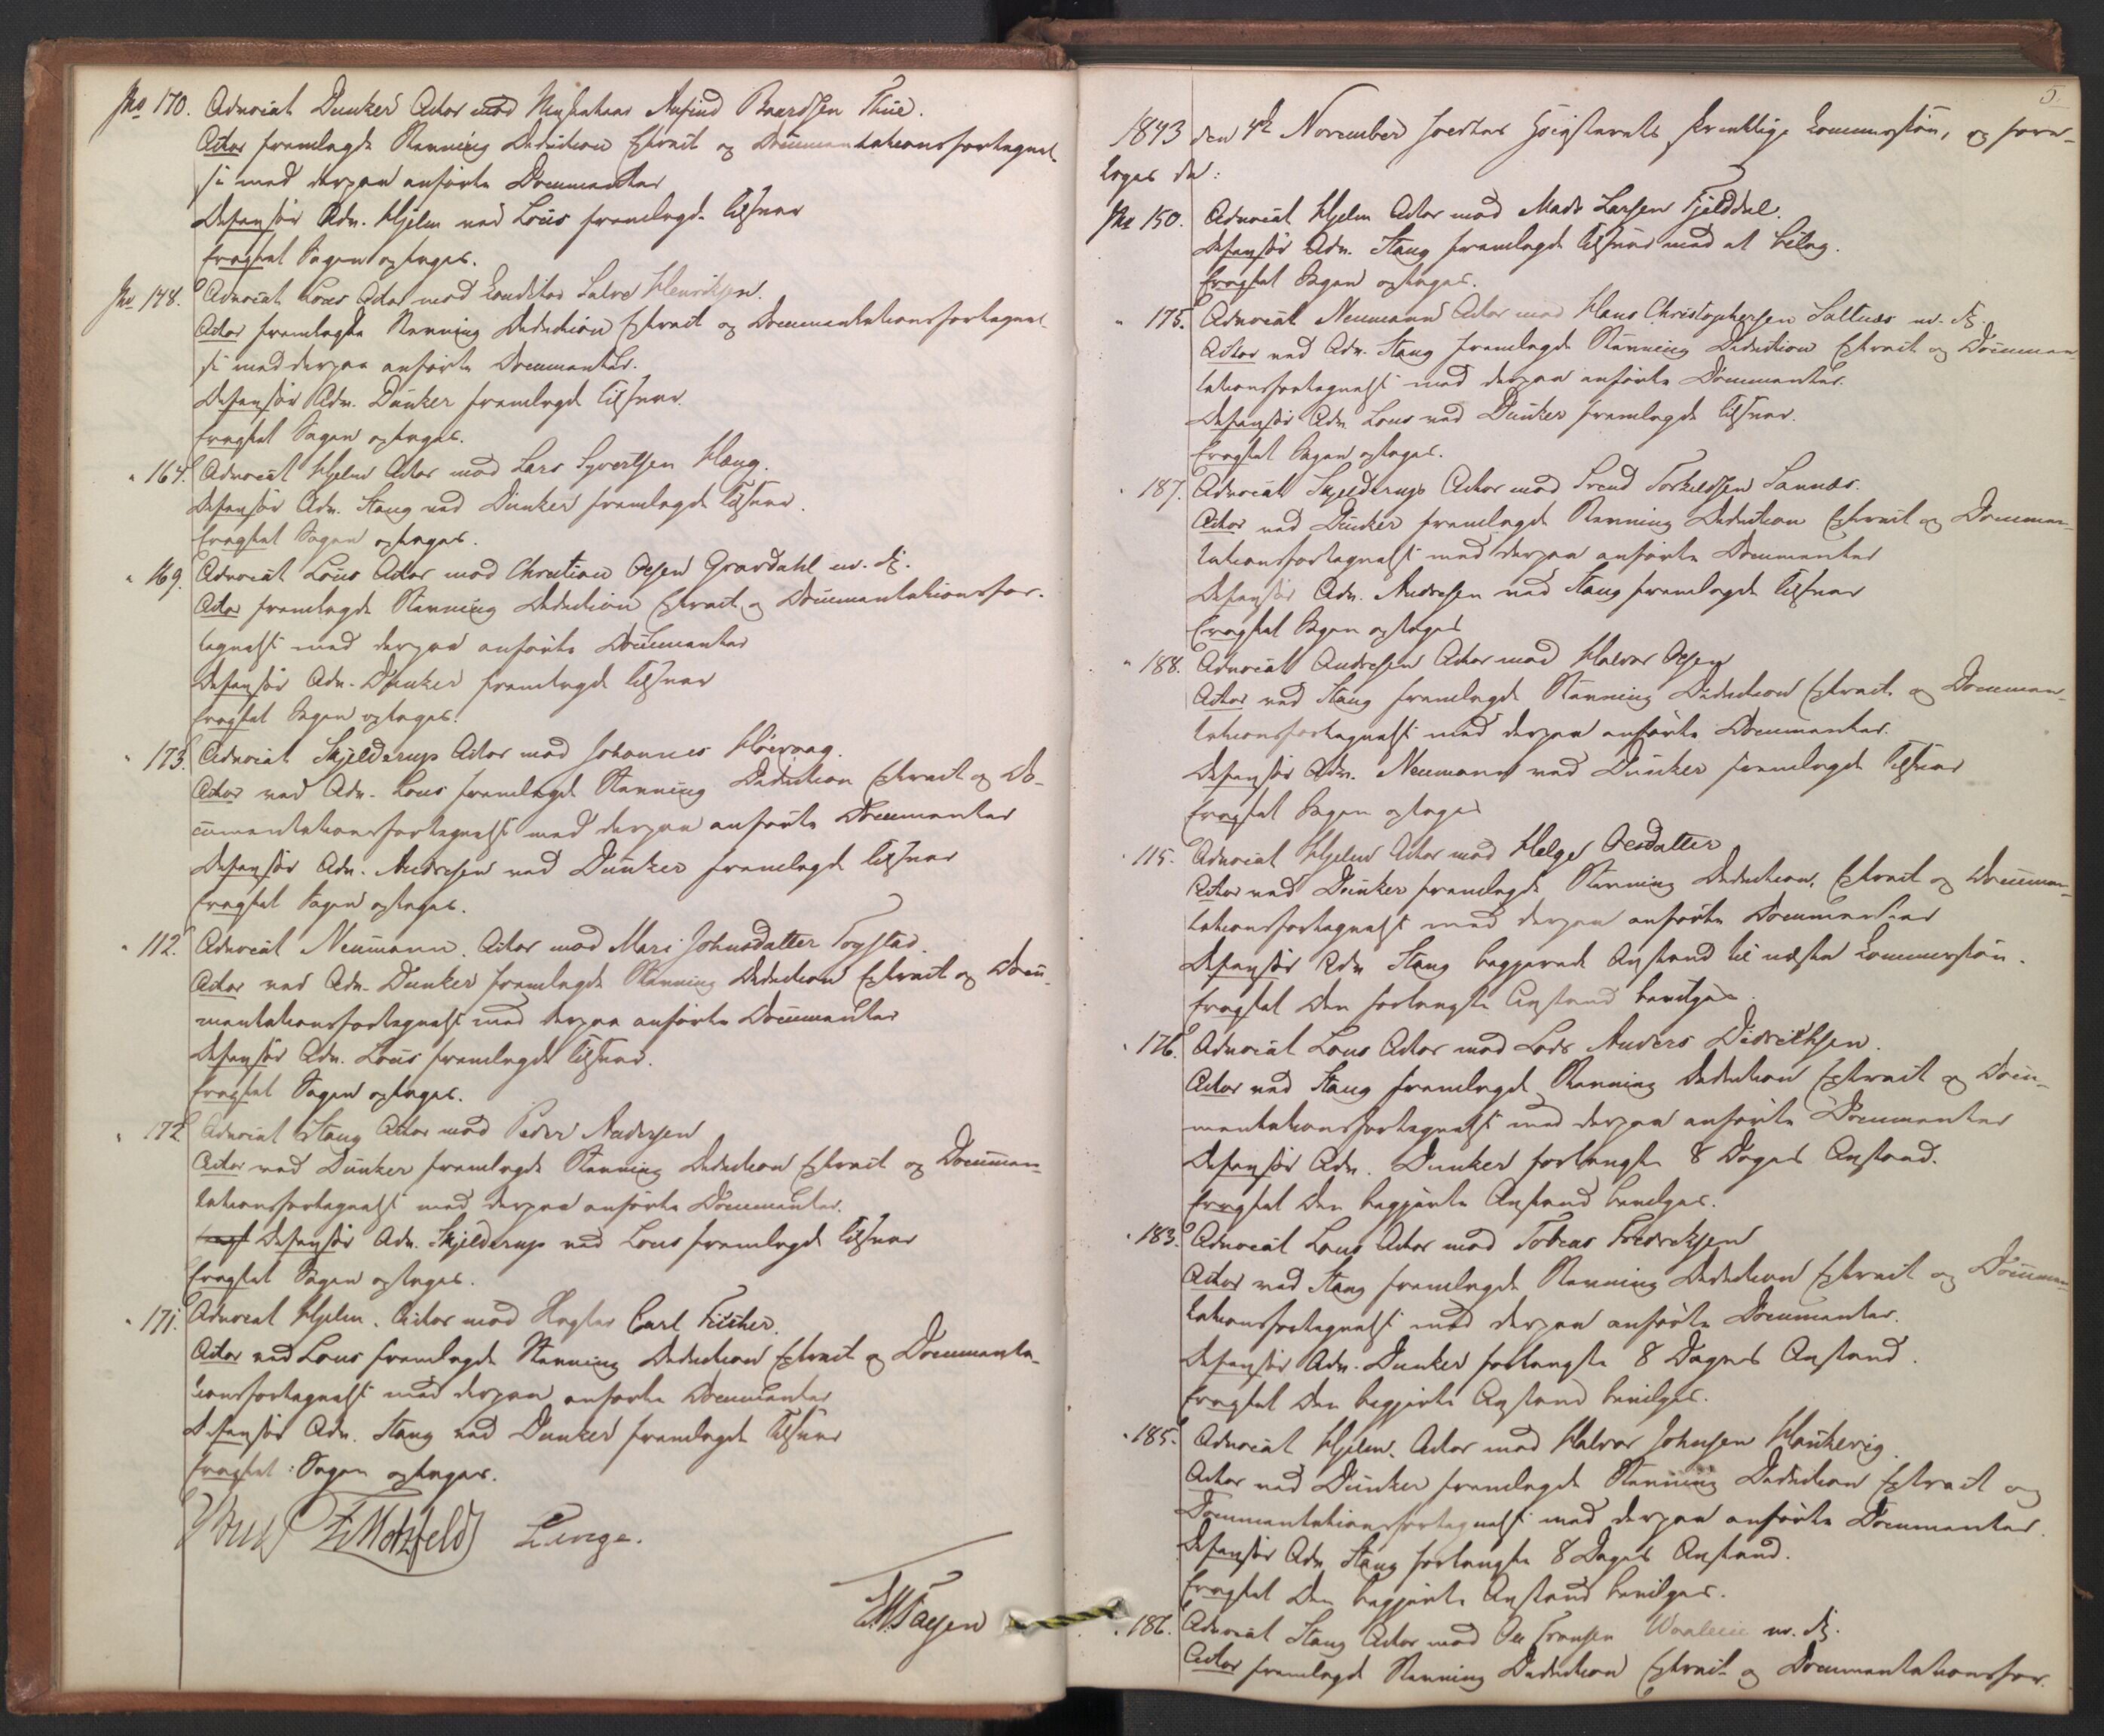 No 170. Advocat Dunker Actor mod Arfind Baardsen Thue.
Actor fremlagde Stævning Deduction Extract og Documentationsfortegnel-
se med derpaa anførte Documenter
Defensor Adv. Hjelm ved Lous fremlagde Tilsvar
Eragtet Sagen optages.
No 148. Advocat Lous Actor mod Salve Henriksen.
Actor fremlagde Stævning Deduction Extract og Documentationsfortegnel-
se med derpaa anførte Documenter.
Defensor Adv. Dunker fremlagde Tilsvar.
Eragtet Sagen optages.
" 164. Advocat Hjelm Actor mod Lars Syvertsen Haug.
Defensor Adv. Stang ved Dunker fremlagde Tilsvar.
Eragtet Sagen optages.
" 169. Advocat Lous Actor mod Christian Olsen Gravdahl m. fl.
Actor fremlagde Stævning Deduction Extract og Documentationsfor-
tegnelse med derpaa anførte Documenter
Defensor Adv. Dunker fremlagde Tilsvar
Eragtet Sagen optages.
" 173. Advocat Skjelderup Actor mod Johannes Høievaag.
Actor ved Adv. Lous fremlagde Stævning Deduction Extract og Do-
cumentationsfortegnelse med derpaa anførte Documenter
Defensor Adv. Andresen ved Dunker fremlagde Tilsvar
Eragtet Sagen optages.
" 112. Advocat Neumann. Actor mod Mari Johnsdatter Togstad.
Actor ved Adv. Dunker fremlagde Stævning Deduction Extract og Docu-
mentationsfortegnelse med derpaa anførte Documenter
Defensor Adv. Lous fremlagde Tilsvar.
Eragtet Sagen optages.
" 172 Advocat Stang Actor mod Peder Andersen
Actor ved Dunker fremlagde Stævning Deduction Extract og Documen-
tationsfortegnelse med derpaa anførte Documenter.
Defensor Adv. Skjelderup ved Lous fremlagde Tilsvar
Eragtet Sagen optages.
" 171. Advocat Hjelm. Actor mod Carl Fischer.
Actor ved Lous fremlagde Stævning Deduction Extract og Documenta-
tionsfortegnelse med derpaa anførte Documenter
Defensor Adv. Stang ved Dunker fremlagde Tilsvar
Eragtet: Sagen optages.
Motzfeldt Lange.
5.
1843 den 4de November holdtes Høiesterets skriftlige Sommersion, og fore-
toges da:
No 150. Advocat Hjelm Actor mod Mads Larsen Fjelddal.
Defensor Adv. Stang fremlagde Tilsvar med et Bilag.
Eragtet Sagen optages.
" 175. Advocat Neumann Actor mod Hans Christophersen Saltnæs m. fl.
Actor ved Adv. Stang fremlagde Stævning Deduction Extract og Documen-
tationsfortegnelse med derpaa anførte Documenter.
Defensor Adv. Lous ved Dunker fremlagde Tilsvar.
Eragtet Sagen optages.
" 187. Advocat Skjelderup Actor mod Svend Torkeldsen Sannæs.
Actor ved Dunker fremlagde Stævning Deduction Extract og Documen-
tationsfortegnelse med derpaa anførte Documenter
Defensor Adv. Andresen ved Stang fremlagde Tilsvar
Eragtet Sagen optages
" 188. Advocat Andresen Actor mod Halvor Olsen
Actor ved Stang fremlagde Stævning Deduction Extract og Documen-
tationsfortegnelse med derpaa anførte Documenter.
Defensor Adv. Neumann ved Dunker fremlagde Tilsvar
Eragtet Sagen optages
" 115. Advocat Hjelm Actor mod Helge Olesdatter
Actor ved Dunker fremlagde Stævning Deduction, Extract og Documen-
tationsfortegnelse med derpaa anførte Documenter
Defensor Adv. Stang begjærede Anstand til næste
Eragtet Den forlangte Anstand bevilges.
" 176. Advocat Lous Actor mod Lods Anders Didrichsen.
Actor ved Stang fremlagde Stævning Deduction Extract og Docu-
mentationsfortegnelse med derpaa anførte Documenter
Defensor Adv. Dunker forlangte 8 Dages Anstand.
Eragtet Den begjærte Anstand bevilges.
" 183. Advocat Lous Actor mod Tobias Fredriksen
Actor ved Stang fremlagde Stævning Deduction Extract og Documen-
tationsfortegnelse med derpaa anførte Documenter.
Defensor Adv. Dunker forlangte 8 Dages Anstand.
Eragtet Den begjærte Anstand bevilges.
" 185. Advocat Hjelm. Actor mod Halvor Johnsen Haukevig.
Actor ved Dunker fremlagde Stævning Deduction Extract og
Documentationsfortegnelse med derpaa anførte Documenter.
Defensor Adv. Stang forlangte 8 Dages Anstand.
Eragtet Den begjærte Anstand bevilges.
" 186. Advocat Stang Actor mod Ole Fransen m. fl.
Actor fremlagde Stævning Deduction Extract og Documentationsfor-